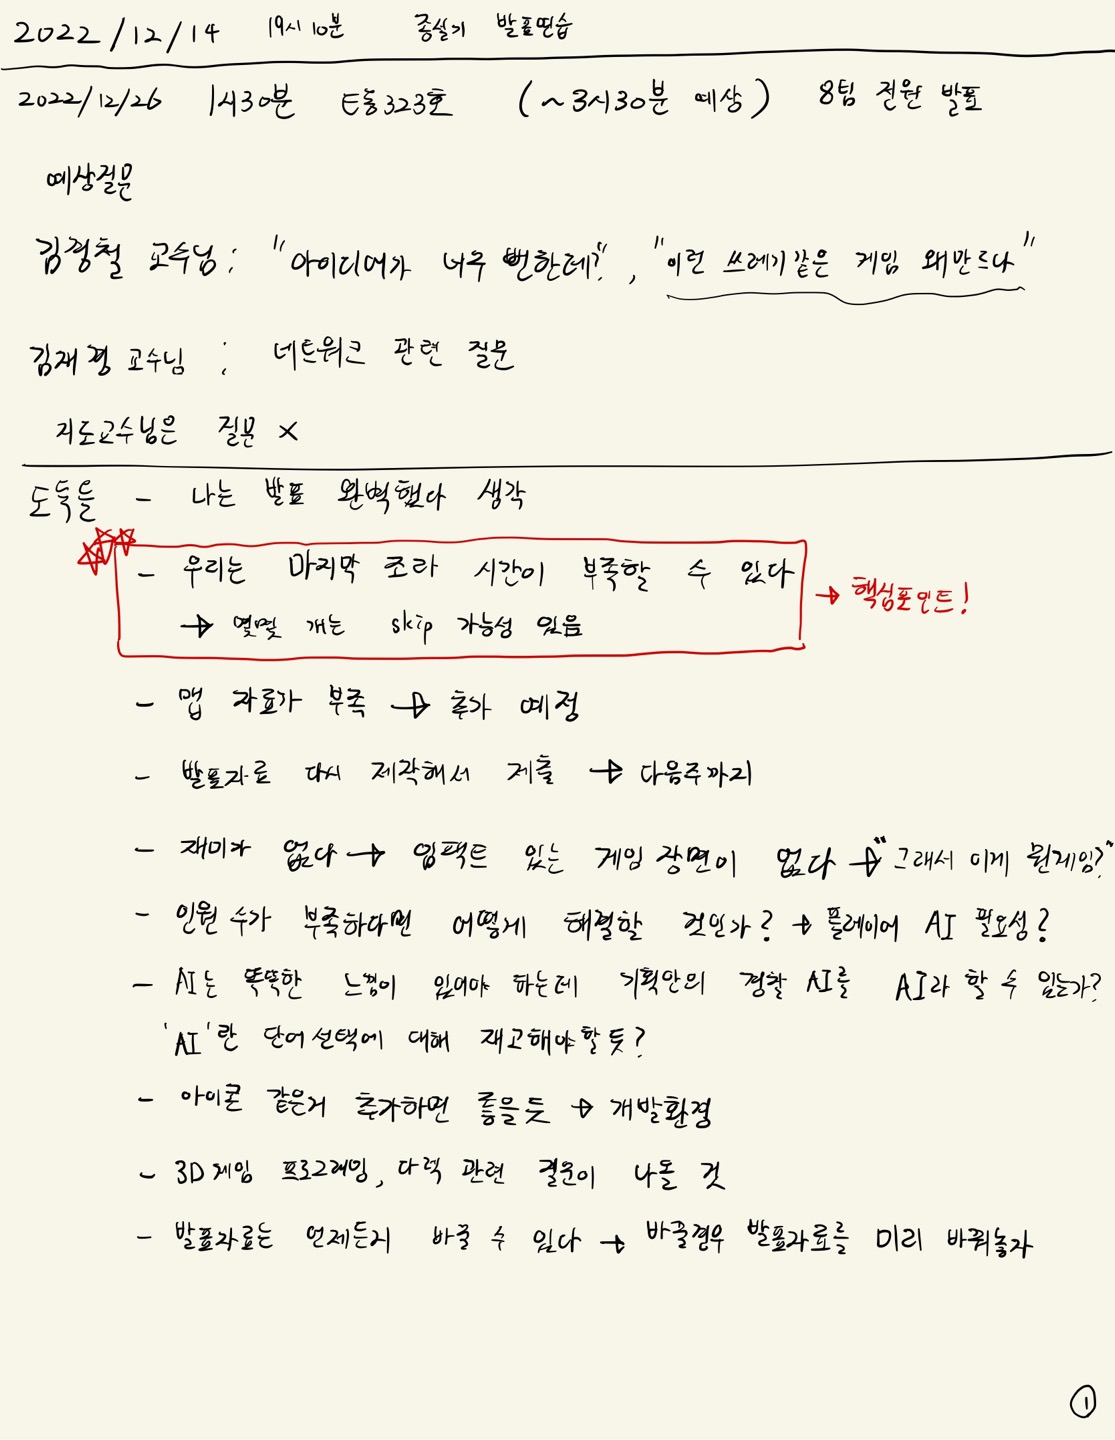 2022/12/14 19시 10분 종설기 발표연습
2022/12/26 1시30분 E동323호 (~3시30분 예상) 8팀 전원 발표
예상질문
김경철 교수님 : "아이디어가 너무 뻔한데?", "이런 쓰레기같은 게임 왜만드나"
김재경 교수님 : 네트워크 관련 질문
지도교수님은 질문 X
도둑들 - 나는 발표 완벽했다 생각
- 우리는 마지막 조라 시간이 부족할 수 있다
→ 몇몇 개는 skip 가능성 있음
→ 핵심포인트!
- 맵 자료가 부족 → 추가 예정
- 발표자료 다시 제작해서 제출 → 다음주까지
- 재미가 없다 → 임팩트 있는 게임 장면이 없다 → "그래서 이게 뭔게임?"
- 인원 수가 부족하다면 어떻게 해결할 것인가? → 플레이어 AI 필요성?
- AI는 똑똑한 느낌이 있어야 하는데 기획안의 경찰 AI를 AI라 할 수 있는가?
'AI'란 단어선택에 대해 재고해야할듯?
- 아이콘 같은거 추가하면 좋을듯 → 개발환경
- 3D게임 프로그래밍, 다렉 관련 질문이 나올 것
- 발표자료는 언제든지 바꿀 수 있다 → 바꿀경우 발표자료를 미리 바꿔놓자
1